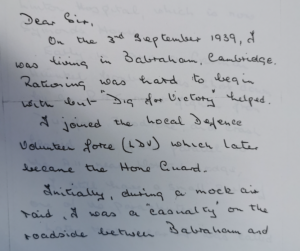 Dear Sir,
On the 3rd September 1939, I
was living in Babraham, Cambridge.
Rationing was hard to begin
with but "Dig for Victory" helped.
I joined the Local Defence
Volunteer force (LDV) which later
became the Home Guard.
Initially, during a mock air
raid, I was a "casualty" on the
roadside between Babraham and